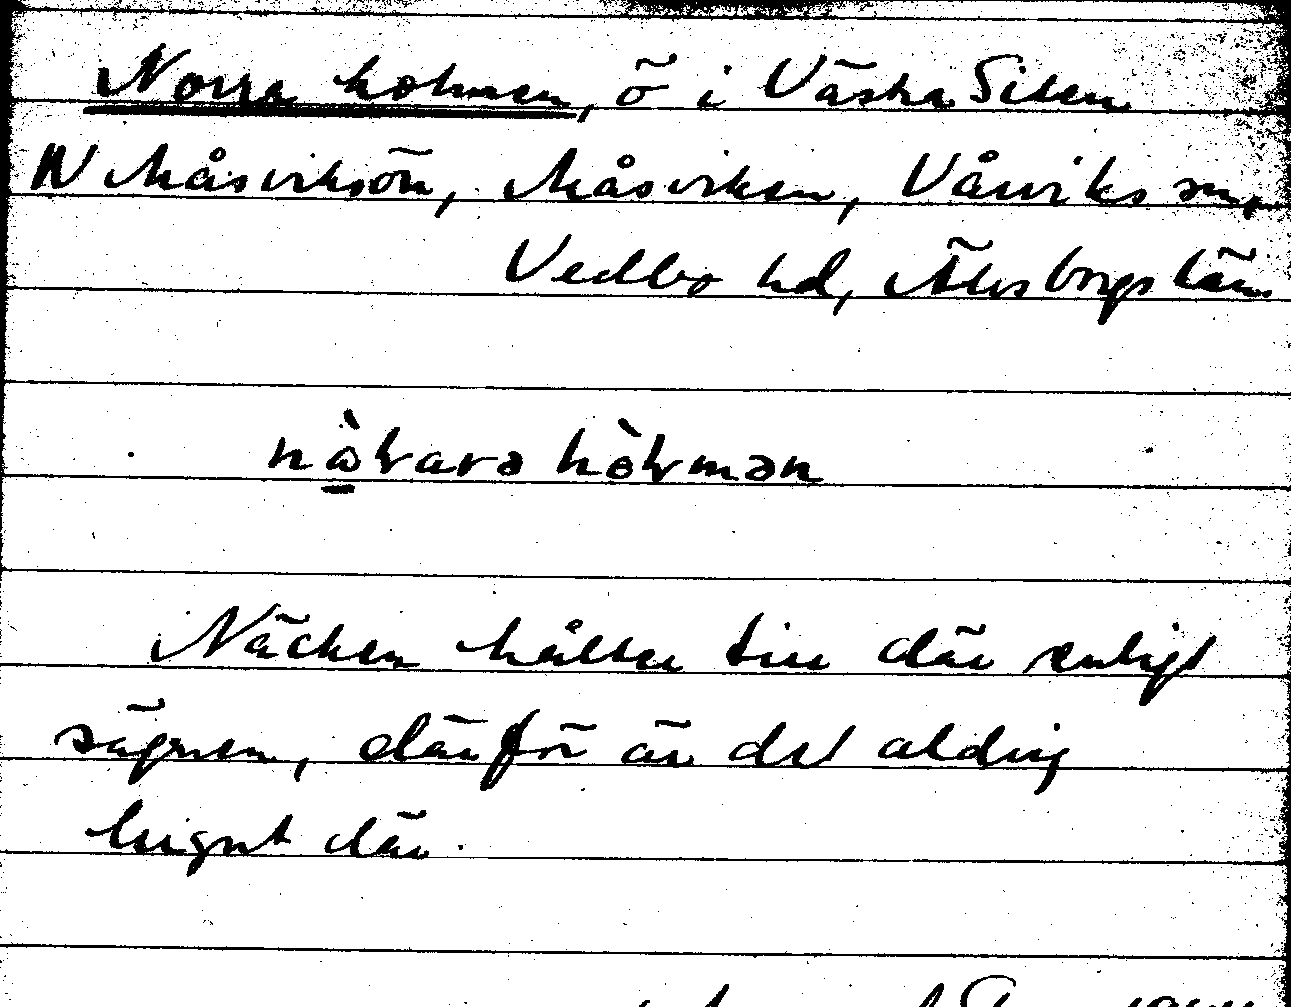 Norra holmen, ö i Västra Silen
N Måsviksön, Måsviken, Vårviks sn,
Vedbo hd, Älvsborgs län.
Näcken håller till där enligt
sägnen, därför är det aldrig
lugnt där.